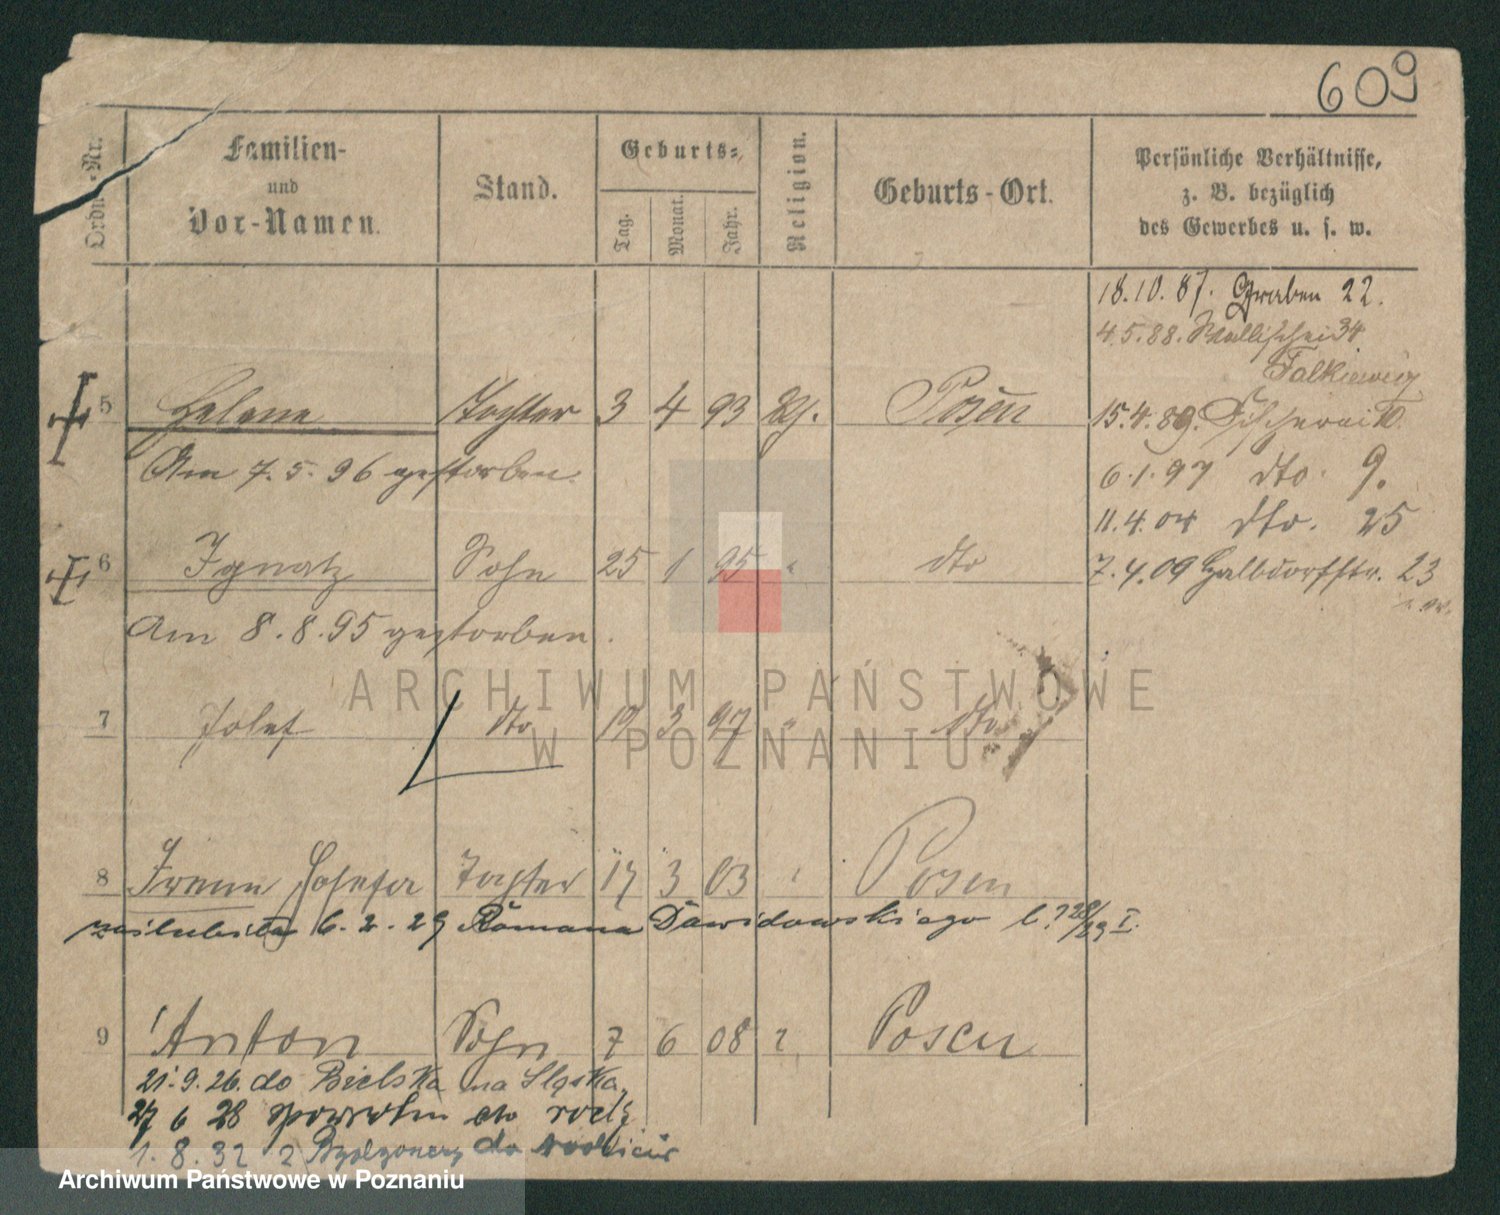 609
Ordn.-Nr.
Familien-
und
Vor-Namen.
Stand.
Geburts-
Tag.
Monat.
Jahr.
Religion.
Geburts-Ort.
Persönliche Verhältnisse,
z. B. bezüglich
des Gewerbes u. s. w.
18.10.87. Graben 22.
4.5.88. Wallischei 34
15.4.89. Fischerei 10.
6.1.97 dto. 9.
11.4.04 dto. 25
7.4.09 Halbdorfstr. 23
5 Helene Tochter 3 4 93 Posen
Am 7.5.96 gestorben.
6 Ignatz Sohn 25 1 95 " dto
Am 8.8.95 gestorben.
7 Josef dto 19 3 97 " dto
8 Irene Josefa Tochter 17 3 03 Posen
6.2.29 Romana Dawidowskiego
9 Anton Sohn 7 6 08 Posen
21.9.26. do Bielska na Śląska
27 6 28 spowrotem do rodz
1.8.32 z Bydgoszczy do rodziców
ARCHIWUM PAŃSTWOWE
W POZNANIU
Archiwum Państwowe w Poznaniu